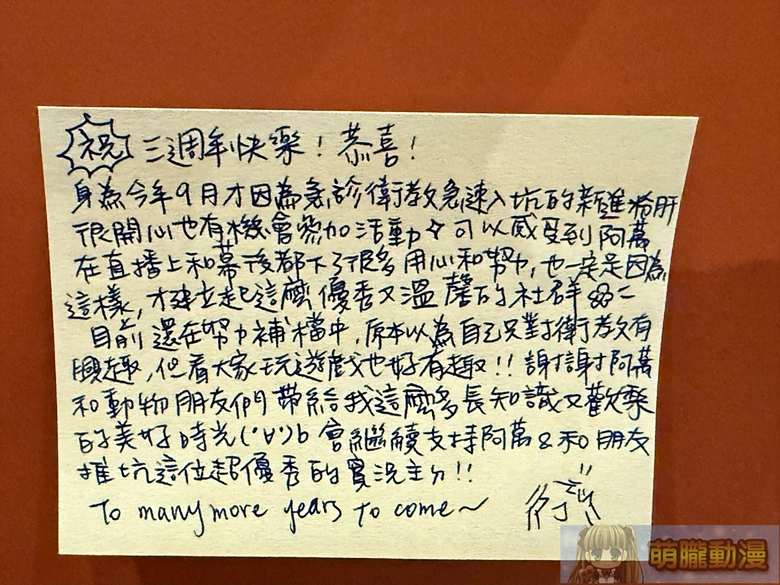 祝 三週年快樂！恭喜！
身為今年9月才因為急診衛教急速入坑的新雞豬肝
很開心也有機會參加活動✧可以感受到阿萬
在直播上和幕後都下了很多用心和努力，也一定是因為
這樣，才建立起這麼優秀又溫馨的社群
目前還在努力補檔中，原本以為自己只對衛教有
興趣，但看大家玩遊戲也好有趣!! 謝謝阿萬
和動物朋友們帶給我這麼多長知識又歡樂
的美好時光(˙∀˙)b 會繼續支持阿萬&和朋友
推坑這位超優秀的實況主ㄉ!!
To many more years to come~
萌朧動漫